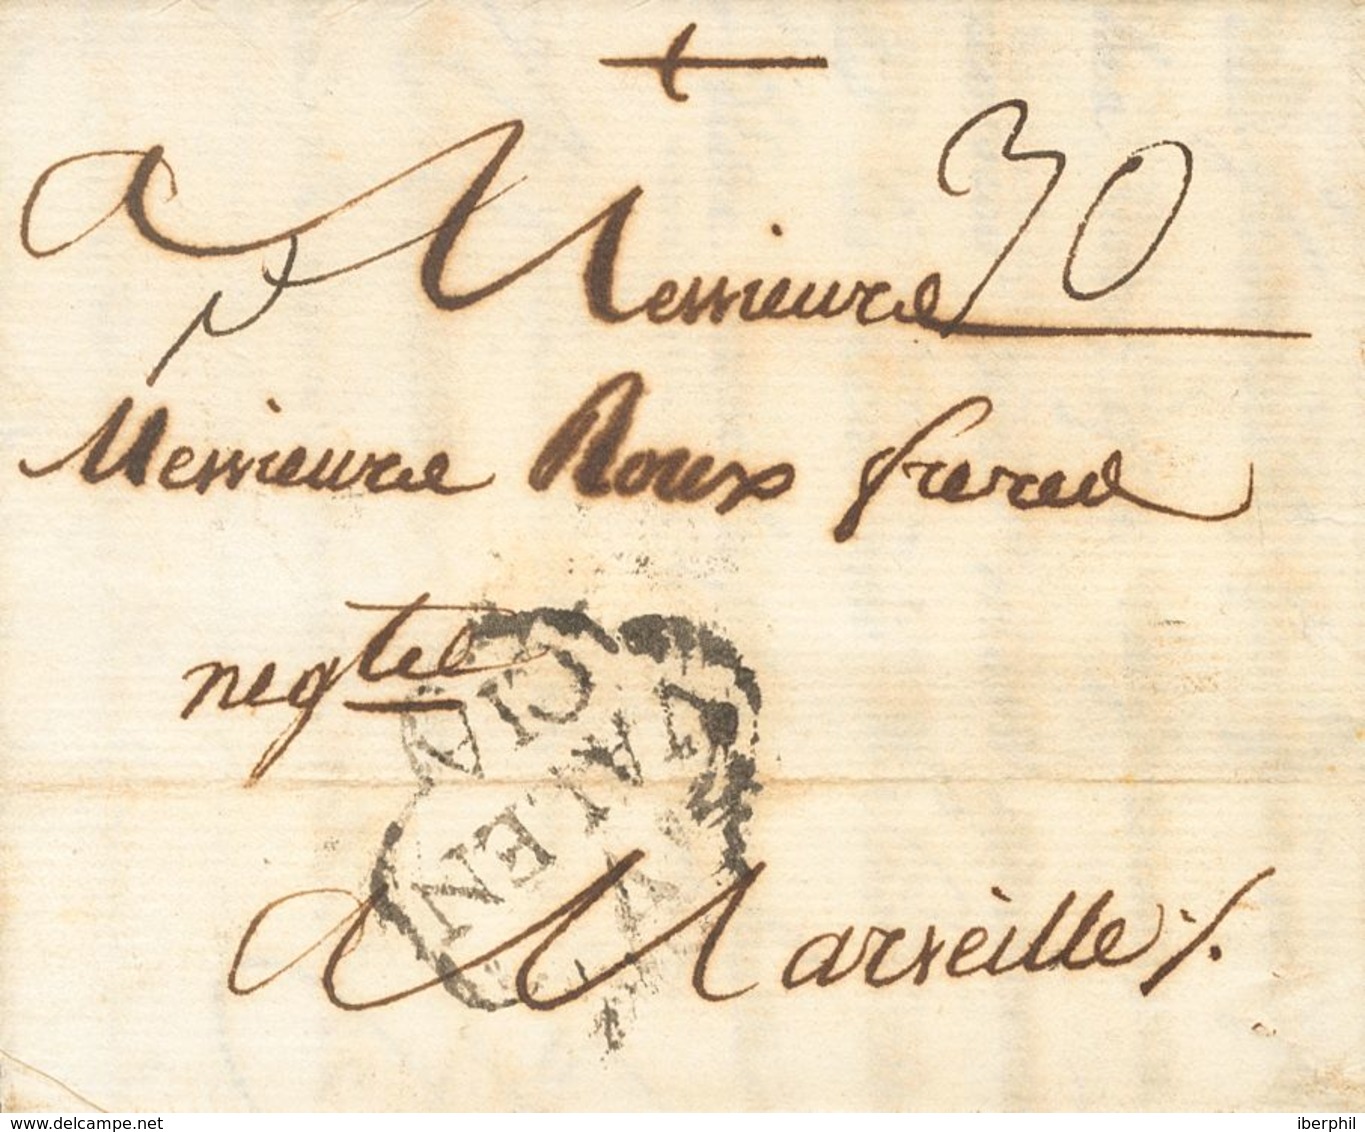 +
a Messieurs 30
Messieurs Roux freres
negts
CIA
VALEN
a Marseille ./.
www.delcampe.net
iberphil